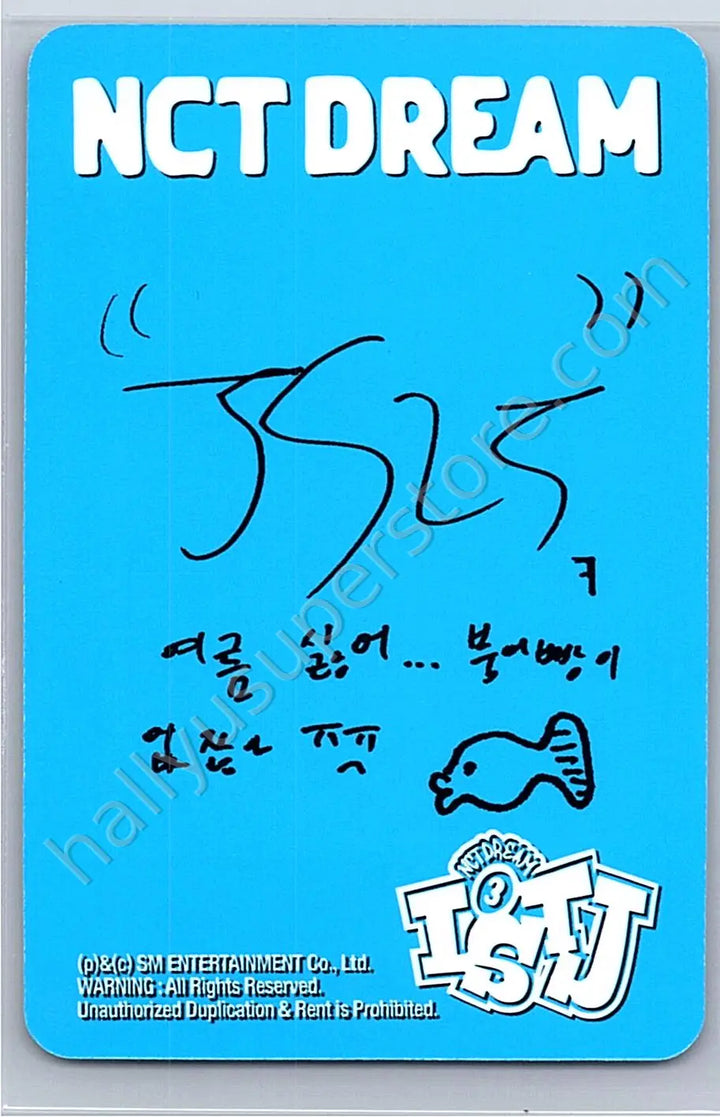 NCT DREAM
여름 싫어... 붕어빵이
없잖아 ㅠㅠ
NCT DREAM
3
ISTJ
(p)&(c) SM ENTERTAINMENT Co., Ltd.
WARNING : All Rights Reserved.
Unauthorized Duplication & Rent is Prohibited.
hallyusuperstore.com